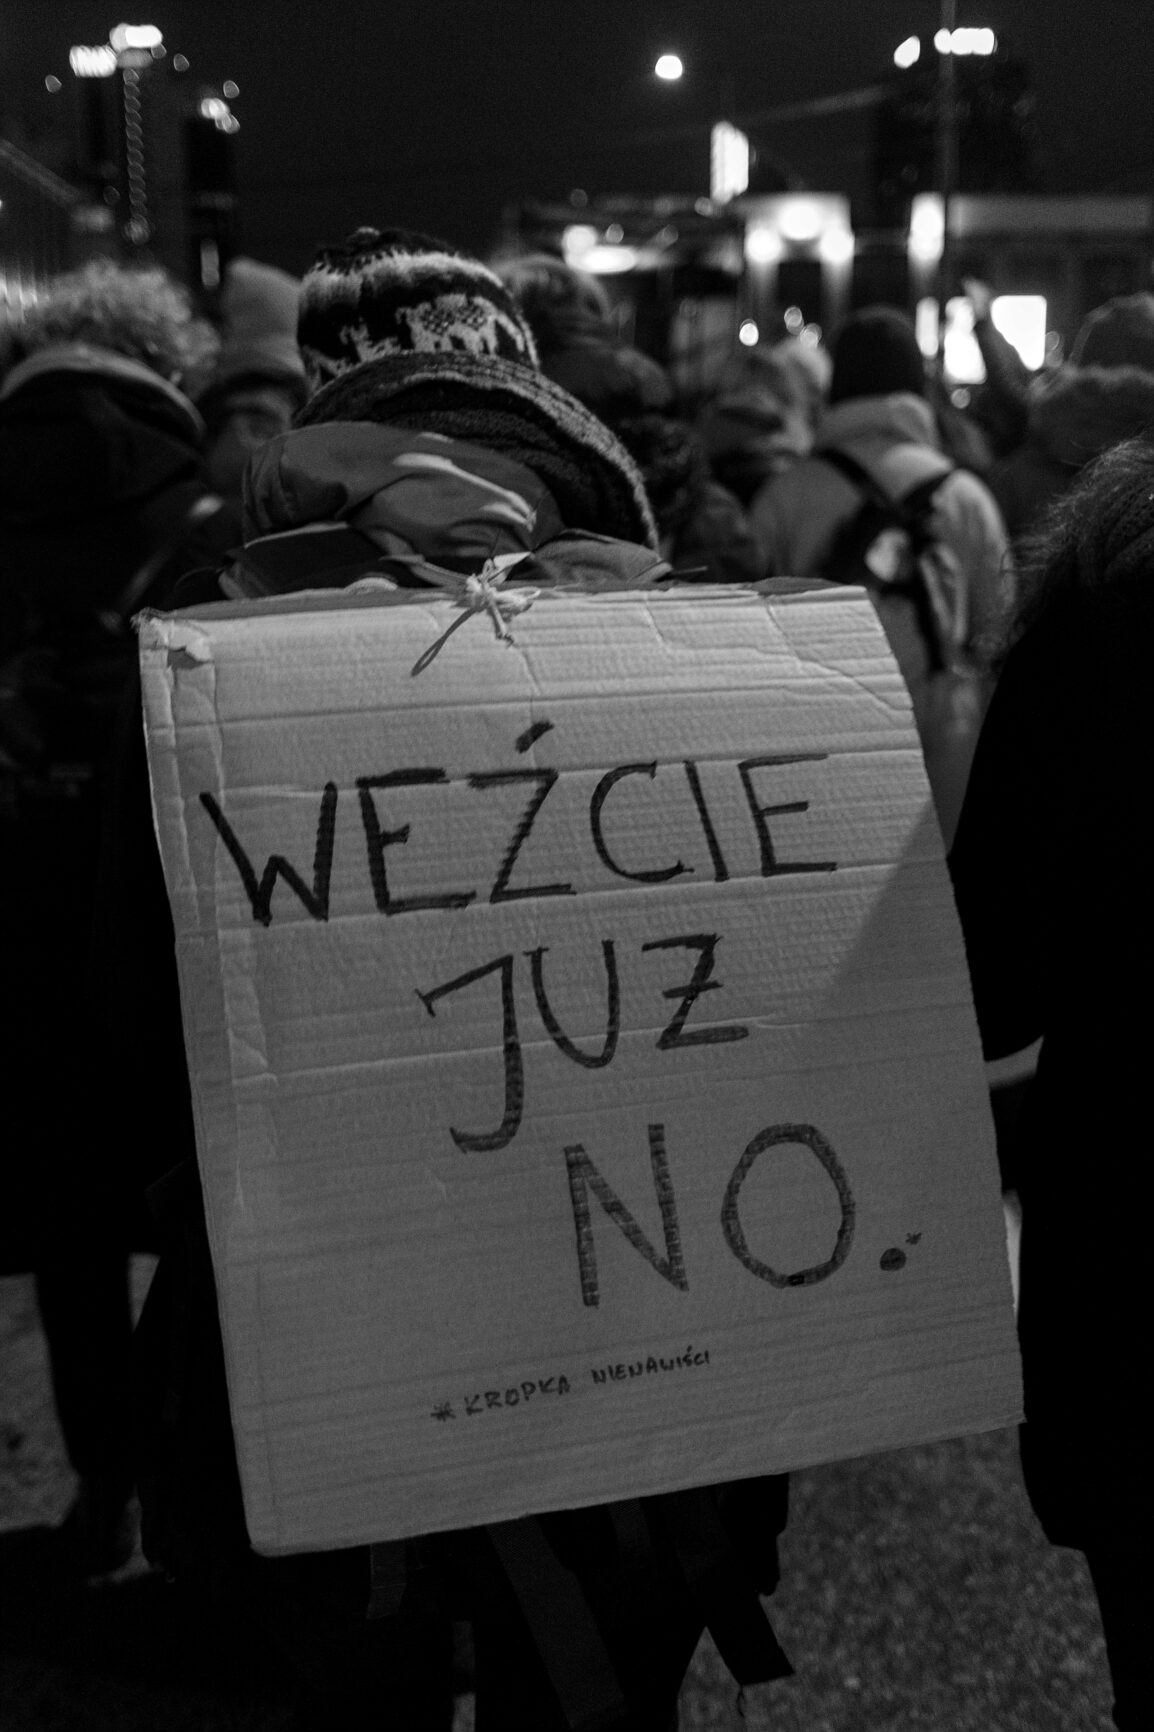 WEŹCIE
JUƵ
NO.*
*KROPKA NIENAWIŚCI